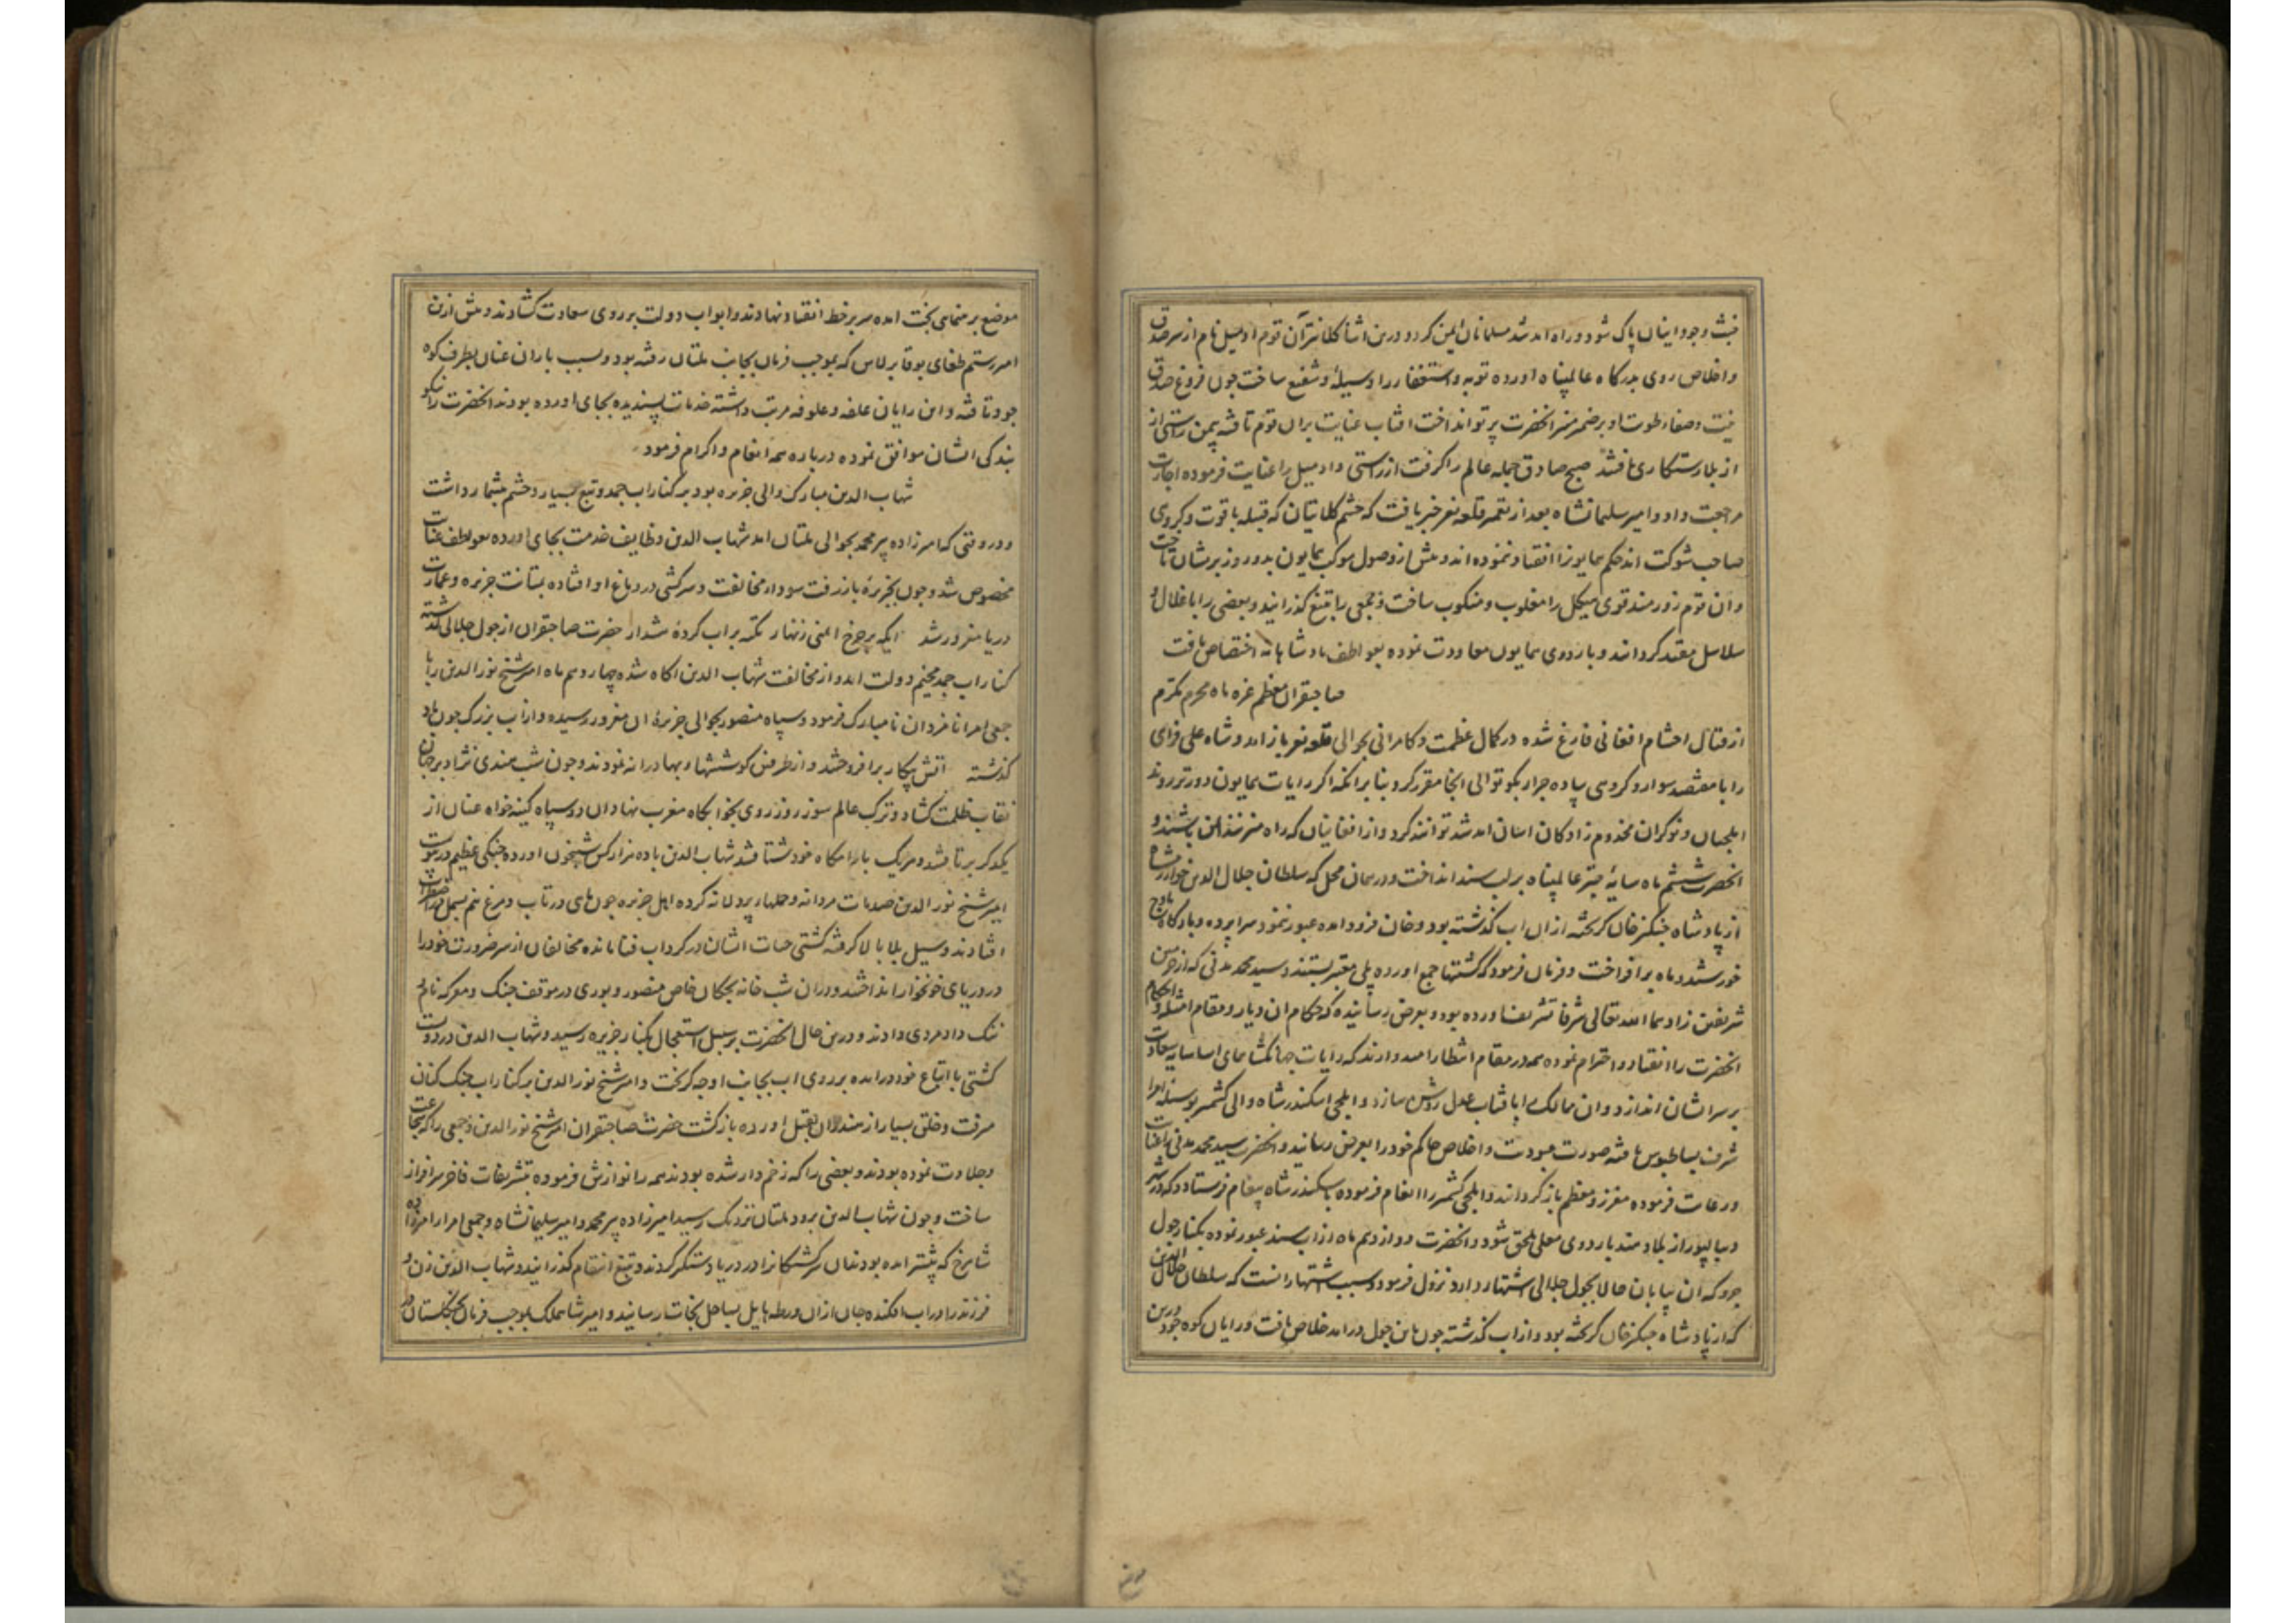 خبث وجود اینان پاک شود و راه امد شد مسلمانان ایمن کردد و درین اثنا کلانتر آن قوم اودمیل نام از سر صدق
و اخلاص روی بدرکاه عالمپناه اورده توبه و استغفار را وسیله و شفیع ساخت چون فروغ صدق
نیت و صفاء طویت او بر ضمیر منیر انحضرت پرتو انداخت افتاب عنایت بران قوم تافته بیمن راستی از
از بلا رستکاری یافتند صبح صادق جمله عالم را کرفت از راستی و اودمیل را عنایت فرموده اجازت
مراجعت داد و امیر سلیمانشاه بعد از تعمیر قلعه نغر خبر یافت که حشم کلاتیان که قبیله با قوت و کروی
صاحب شوکت اند حکم همایونرا انقیاد ننموده اند و پیش از وصول موکب همایون بدو روز بر سر ایشان تاخت
و ان قوم زورمند قوی هیکل را مغلوب و منکوب ساخت و جمعی را بتیغ کذرانید و بعضی را با غلال و
سلاسل مقید کردانید و باردوی همایون معاودت نموده بعواطف پادشاهانه اختصاص یافت
صاحبقران معظم غره ماه محرم مکرم
از قتال احشام افغانی فارغ شده در کمال عظمت و کامرانی بحوالی قلعه نغر باز امد و شاه علی فراهی
را با هفتصد سوار و کروهی پیاده جرار بکوتوالی انجا مقرر کرد بنا بر انکه اکر رایات همایون دورتر روند
ایلچیان و نوکران مخدوم زادکان اسان امد شد توانند کرد و از افغانیان که راه میزنند ایمن باشند و
انحضرت ششم ماه سایه چتر عالمپناه بر لب سند انداخت و در همان محل که سلطان جلال الدین خوارزمشاه
از پادشاه چنکیز خان کریخته ازان اب کذشته بود و خان فرود امده عبور ننمود سراپرده و بارکاه باوج
خورشید و ماه برافراخت و فرمان فرمود که کشتیها جمع اورده پلی معتبر بستند و سید محمد مدنی که از حرمین
شریفین زادهما الله تعالی شرفا تشریف اورده بود و بعرض رسانیده که حکام ان دیار و مقام امتثال احکام
انحضرت را انقیاد و احترام نموده همه در مقام انتظار امیدوارند که رایات جهانکشای اسا سایه سعادت
بر سر ایشان اندازد و ان ممالک را بافتاب عدل روشن سازد و ایلچی اسکندر شاه والی کشمیر بوسیله امرا
شرف بساطبوس یافته صورت عبودیت و اخلاص حاکم خود را بعرض رسانید و انحضرت سید محمد مدنی را عنایت
و رعایت فرموده معزز و معظم باز کردانید و ایلچی کشمیر را انعام فرموده باسکندر شاه پیغام فرستاد که در شهر
دیبالپور از بلاد هند باردوی معلی ملحق شود و انحضرت دوازدهم ماه از اب سند عبور نموده بکنار چول
جرو که ان بیابان حالا بچول جلالی اشتهار دارد نزول فرمود و سبب اشتهار انست که سلطان جلال الدین
که از پادشاه چنکیز خان کریخته بود و از اب کذشته چون باین چول درامد خلاص یافت و رایان کوه جود درین
موضع برهنمایی بخت امده سر بر خط انقیاد نهادند و ابواب دولت بر روی سعادت کشادند و پیش ازین
امیر رستم طغای بوقا برلاس که بموجب فرمان بجانب ملتان رفته بود و بسبب باران عنان بطرف کوه
جود تافته و این رایان علفه و علوفه مرتب داشته خدمات پسندیده بجای اورده بودند انحضرت را نیکو
بندکی ایشان موافق نموده درباره همه انعام و اکرام فرمود
شهاب الدین مبارک والی جزیره بود بر کنار اب جمد و تبع بسیار و حشم بیشمار داشت
و در وقتی که امیرزاده پیر محمد بحوالی ملتان امد شهاب الدین وظایف خدمت بجای اورده بعواطف عنایت
مخصوص شد و چون بجزیره باز رفت سودای مخالفت و سرکشی در دماغ او افتاده بمتانت جزیره و عمارت
دریا مغرور شد ایکه بر چرخ ایمنی زنهار تکیه بر اب کرده هشدار حضرت صاحبقران از چول جلالی کذشته
کنار اب جمد مخیم دولت امد و از مخالفت شهاب الدین اکاه شده چهاردهم ماه امیر شیخ نور الدین را با
جمعی امرا نامزد ان نامبارک فرمود و سپاه منصور بحوالی جزیره ان مغرور رسیده و از اب بزرک چون باد
کذشته اتش پیکار برافروختند و از طرفین کوششهای بهادرانه نمودند و چون شب هندی نژاد بر جهان
نقاب ظلمت کشاد و ترک عالم سوز روز روی بخوابکاه مغرب نهاد ان دو سپاه کینه خواه عنان از
یکدکر برتافتند و هریک بارامکاه خود شتافتند شهاب الدین با ده هزار کس شبیخون اورده جنکی عظیم در پیوست
امیر شیخ نور الدین صدمات مردانه و حملهای پردلانه کرده اهل جزیره چون ماهی در تاب و مرغ نیم بسمل در اضطراب
افتادند و سیل بلا بالا کرفته کشتی حیات ایشان در کرداب فنا مانده مخالفان از سر ضرورت خود را
در دریای خونخوار انداختند و دران شب خانه بچکان خاص منصور و بوری در موقف جنک و معرکه نام و
ننک داد مردی دادند و درین حال انحضرت بر سبیل استعجال بکنار جزیره رسید و شهاب الدین در دویست
کشتی با اتباع خود درامده بر روی اب بجانب اوجه کریخت و امیر شیخ نور الدین بر کنار اب جنک کنان
میرفت و خلق بسیار از هندوان بقتل اورده بازکشت حضرت صاحبقران امیر شیخ نور الدین و جمعی را که شجاعت
و جلادت نموده بودند و بعضی را که زخم دار شده بودند همه را نوازش فرموده بتشریفات فاخر سرافراز
ساخت و چون شهاب الدین برود ملتان نزدیک رسید امیرزاده پیر محمد و امیر سلیمانشاه و جمعی امرا امیرزاده
شاهرخ که پیشتر امده بودند ان سرکشتکانرا در دریا دستکیر کردند و بتیغ انتقام کذرانیدند و شهاب الدین زن و
فرزند را در اب افکنده جان ازان ورطه هایل بساحل نجات رسانید و امیر شاهملک بموجب فرمان بجنکلستان در